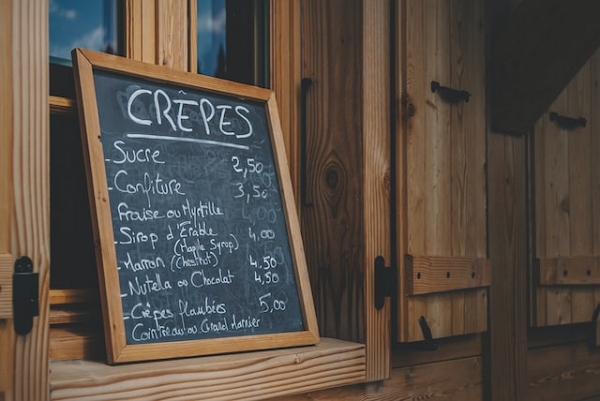 CRÊPES
- Sucre 2,50
- Confiture 3,50
Fraise ou Myrtille
- Sirop d'Érable 4,00
(Maple Syrop)
- Marron (Chestnut) 4,50
- Nutella ou Chocolat 4,50
- Crêpes flambées 5,00
Cointreau ou Grand Marnier